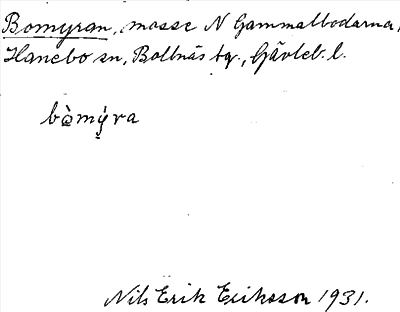 Bomyran, mosse N Gammalbodarna,
Hanebo sn, Bollnäs tg., Gävleb. l.
bò̀mý̠ra
Nils Erik Eriksson 1931.